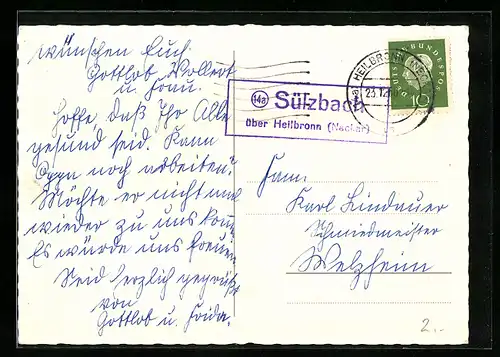 wünschen Euch
Gottlob Vollert
u. Frau.
Hoffe, daß Ihr Alle
gesund seid. Kann
noch arbeiten?
Möchte er nicht mal
wieder zu uns
Es würde uns freuen
Seid herzlich gegrüßt
von
Gottlob u. Frida.
(14a) Sülzbach
über Heilbronn (Neckar)
HEILBRONN (NECKAR)
23.12.
DEUTSCHE BUNDESPOST
10
Fam.
Karl Lindauer
Schmiedmeister
Welzheim
2.-